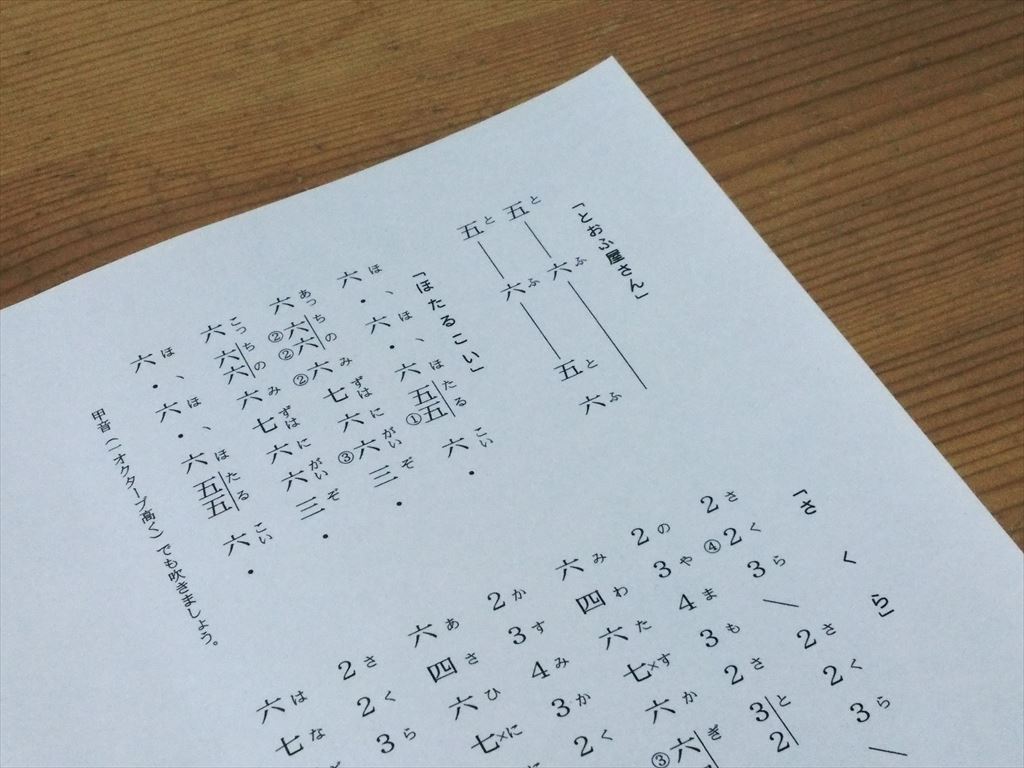 「とおふ屋さん」
と ふ
五―六―
と ふ と ふ
五―六―五 六
「ほたるこい」
ほ、ほ、ほたるこい
六・六・六五①五六・
あっちのみずはにがいぞ
六②六②六②六七六③六三・
こっちのみずはにがいぞ
六六六六七六六三・
ほ、ほ、ほたるこい
六・六・六五五六・
甲音（一オクターブ高く）でも吹きましょう。
「さくら」
さくら さくら
2④23―223―
のやまもさと
2343232
みわたすかぎ
六四六七×六③六
かすみかく
23432
あさひに
六四六七×
さくら
223
はな
六七